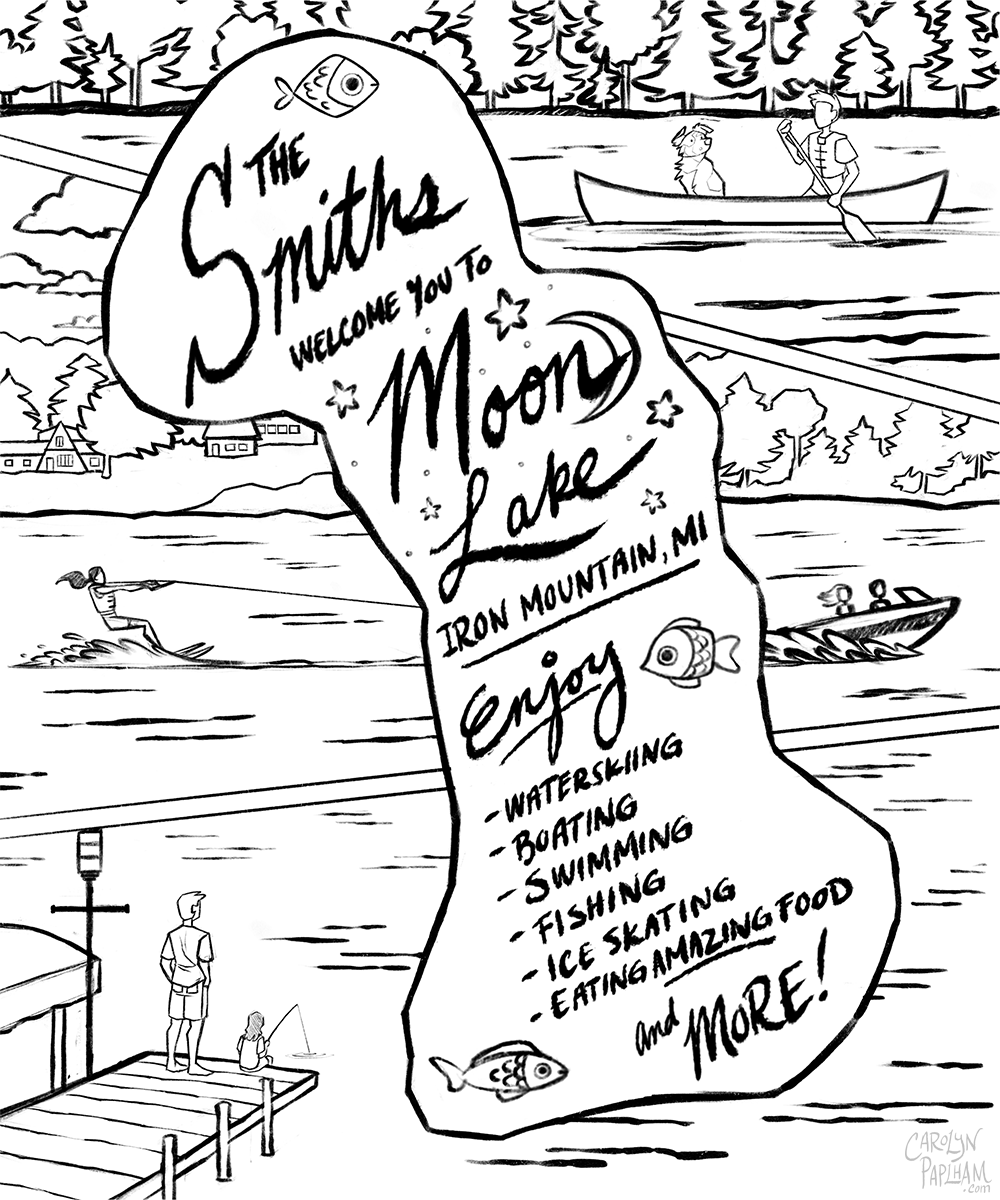 THE
Smiths
WELCOME YOU TO
Moon
Lake
IRON MOUNTAIN, MI
Enjoy
- WATERSKIING
- BOATING
- SWIMMING
- FISHING
- ICE SKATING
- EATING AMAZING FOOD
and MORE!
CAROLYN
PAPLHAM
.com